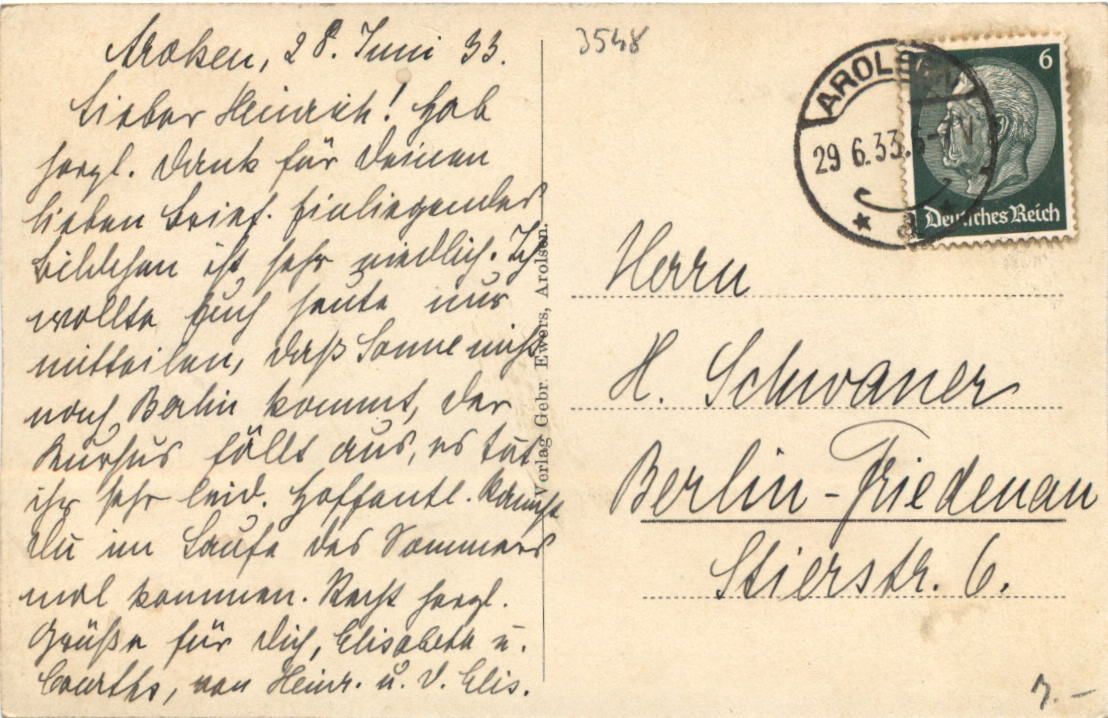 Arolsen, 28. Juni 33.
Lieber Heinrich! Hab
herzl. Dank für Deinen
lieben Brief. Einliegendes
Bildchen ist sehr niedlich. Ich
wollte Euch heute nur
mitteilen, daß Sonne nicht
nach Berlin kommt, der
Kursus fällt aus, es tut
ihr sehr leid. Hoffentl. kannst
Du im Laufe des Sommers
mal kommen. Recht herzl.
Grüße für Dich, Elisabeth u.
von Heinr. u. D. Elis.
Verlag Gebr. Ewers, Arolsen.
3548
AROLSEN
29.6.33.
6
Deutsches Reich
Herrn
H. Schwaner
Berlin-Friedenau
Stierstr. 6.
7.-